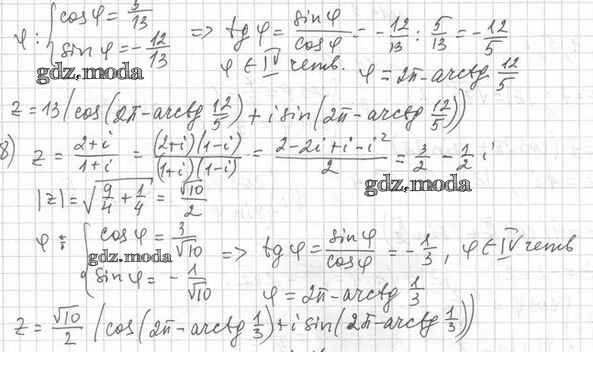 φ: { cosφ = 5/13
sinφ = -12/13 => tgφ = sinφ/cosφ = -12/13 : 5/13 = -12/5
gdz.moda
φ ∈ IV четв. φ = 2π - arctg 12/5
z = 13(cos(2π - arctg 12/5) + i sin(2π - arctg 12/5))
8) z = 2+i/1+i = (2+i)(1-i)/(1+i)(1-i) = 2-2i+i-i²/2 = 3/2 - 1/2 i
gdz.moda
|z| = √(9/4 + 1/4) = √10/2
φ: { cosφ = 3/√10
gdz.moda
sinφ = -1/√10 => tgφ = sinφ/cosφ = -1/3, φ ∈ IV четв
φ = 2π - arctg 1/3
z = √10/2 (cos(2π - arctg 1/3) + i sin(2π - arctg 1/3))